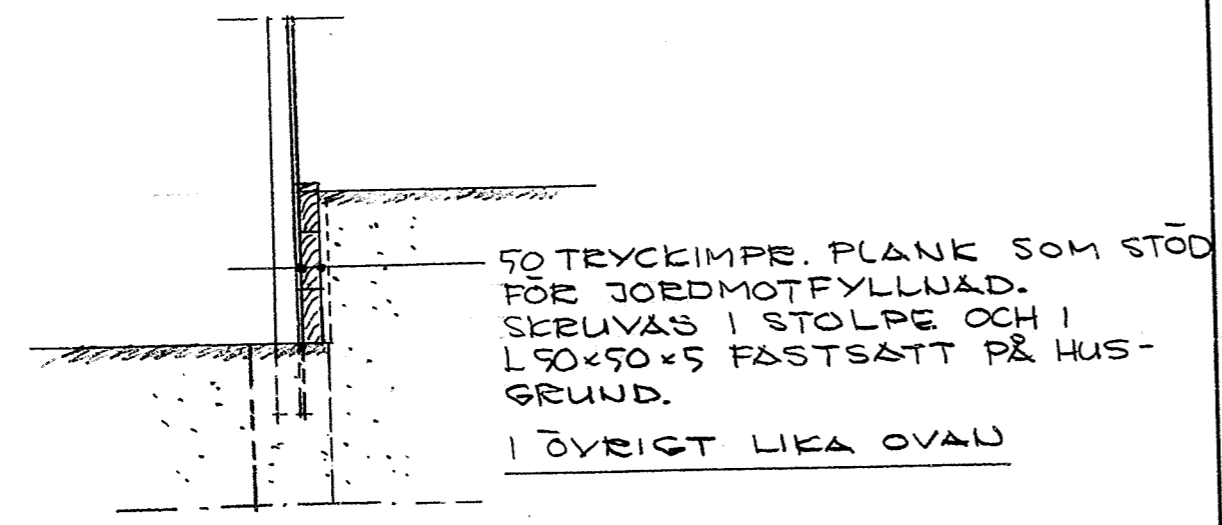 50 TRYCKIMPR. PLANK SOM STÖD
FÖR JORDMOTFYLLNAD.
SKRUVAS I STOLPE OCH I
L 50x50x5 FASTSATT PÅ HUS-
GRUND.
I ÖVRIGT LIKA OVAN